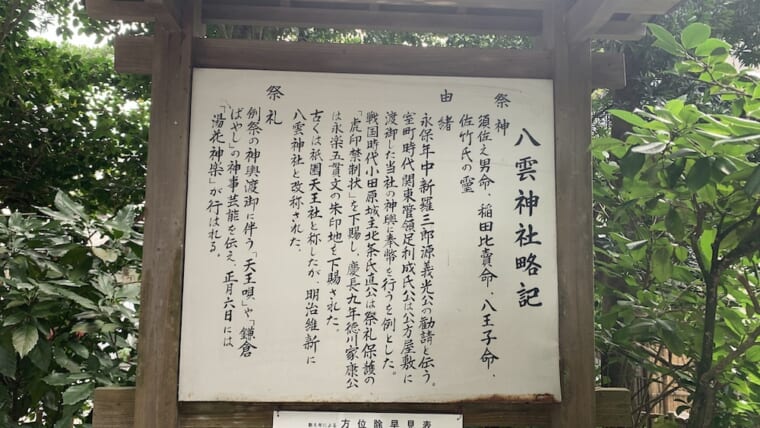 八雲神社略記
祭神
須佐之男命、稲田比売命、八王子命、
佐竹氏の霊
由緒
永保年中新羅三郎源義光公の勧請と伝う。
室町時代関東管領足利成氏公は公方屋敷に
渡御した当社の神輿に奉幣を行うを例とした。
戦国時代小田原城主北条氏直公は祭礼保護の
「虎印禁制状」を下賜し、慶長九年徳川家康公
は永楽五貫文の朱印地を下賜された。
古くは祇園天王社と称したが、明治維新に
八雲神社と改称された。
祭礼
例祭の神輿渡御に伴う「天王唄」や「鎌倉
ばやし」の神事芸能を伝え、正月六日には
「湯花神楽」が行はれる。
方位除早見表